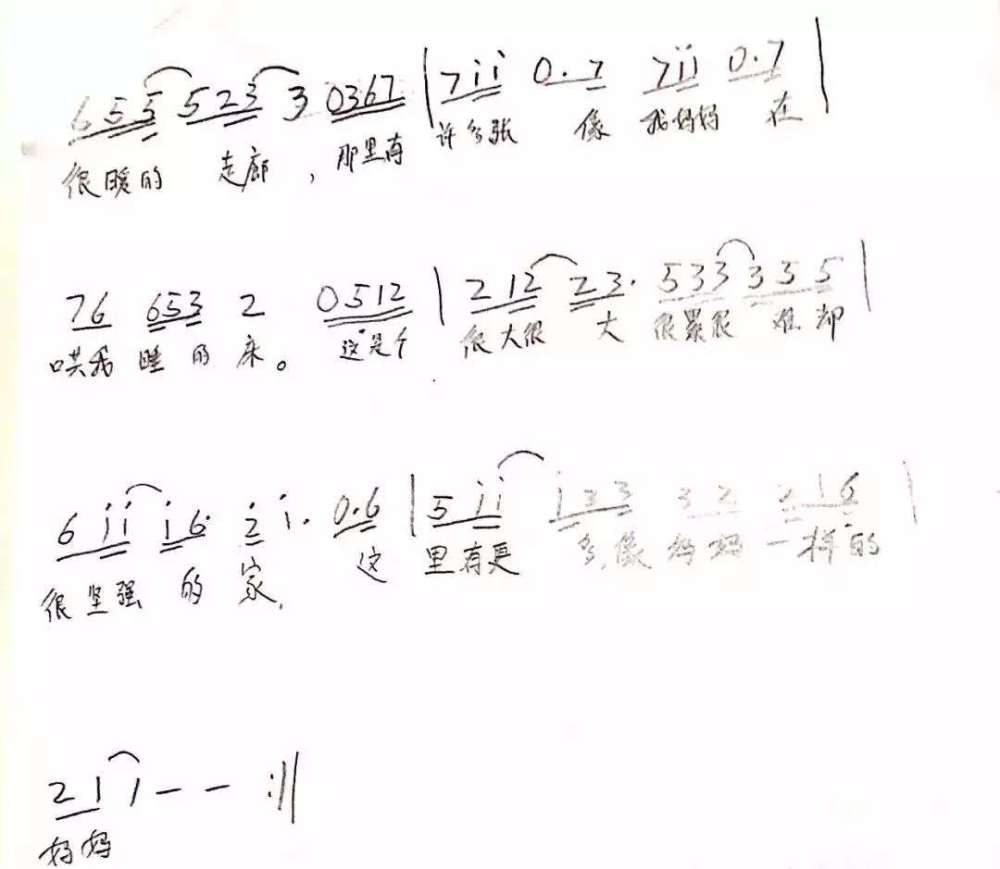 655 523 3 0367 | 7i̇i̇ 0.7 7i̇i̇ 0.7 |
很暖的 走廊，那里有 许多张 像 我妈妈 在
76 653 2 0512 | 212 23. 533 335 |
哄我 睡 的 床。 这是个 很大很 大 很累很 难 却
6 i̇i̇ i̇6. 2̇ i̇. 0.6 | 5 i̇i̇ i̇33 32 216 |
很坚强 的 家, 这 里有更 多,像 妈妈 一样的
21 1 - - :||
妈妈